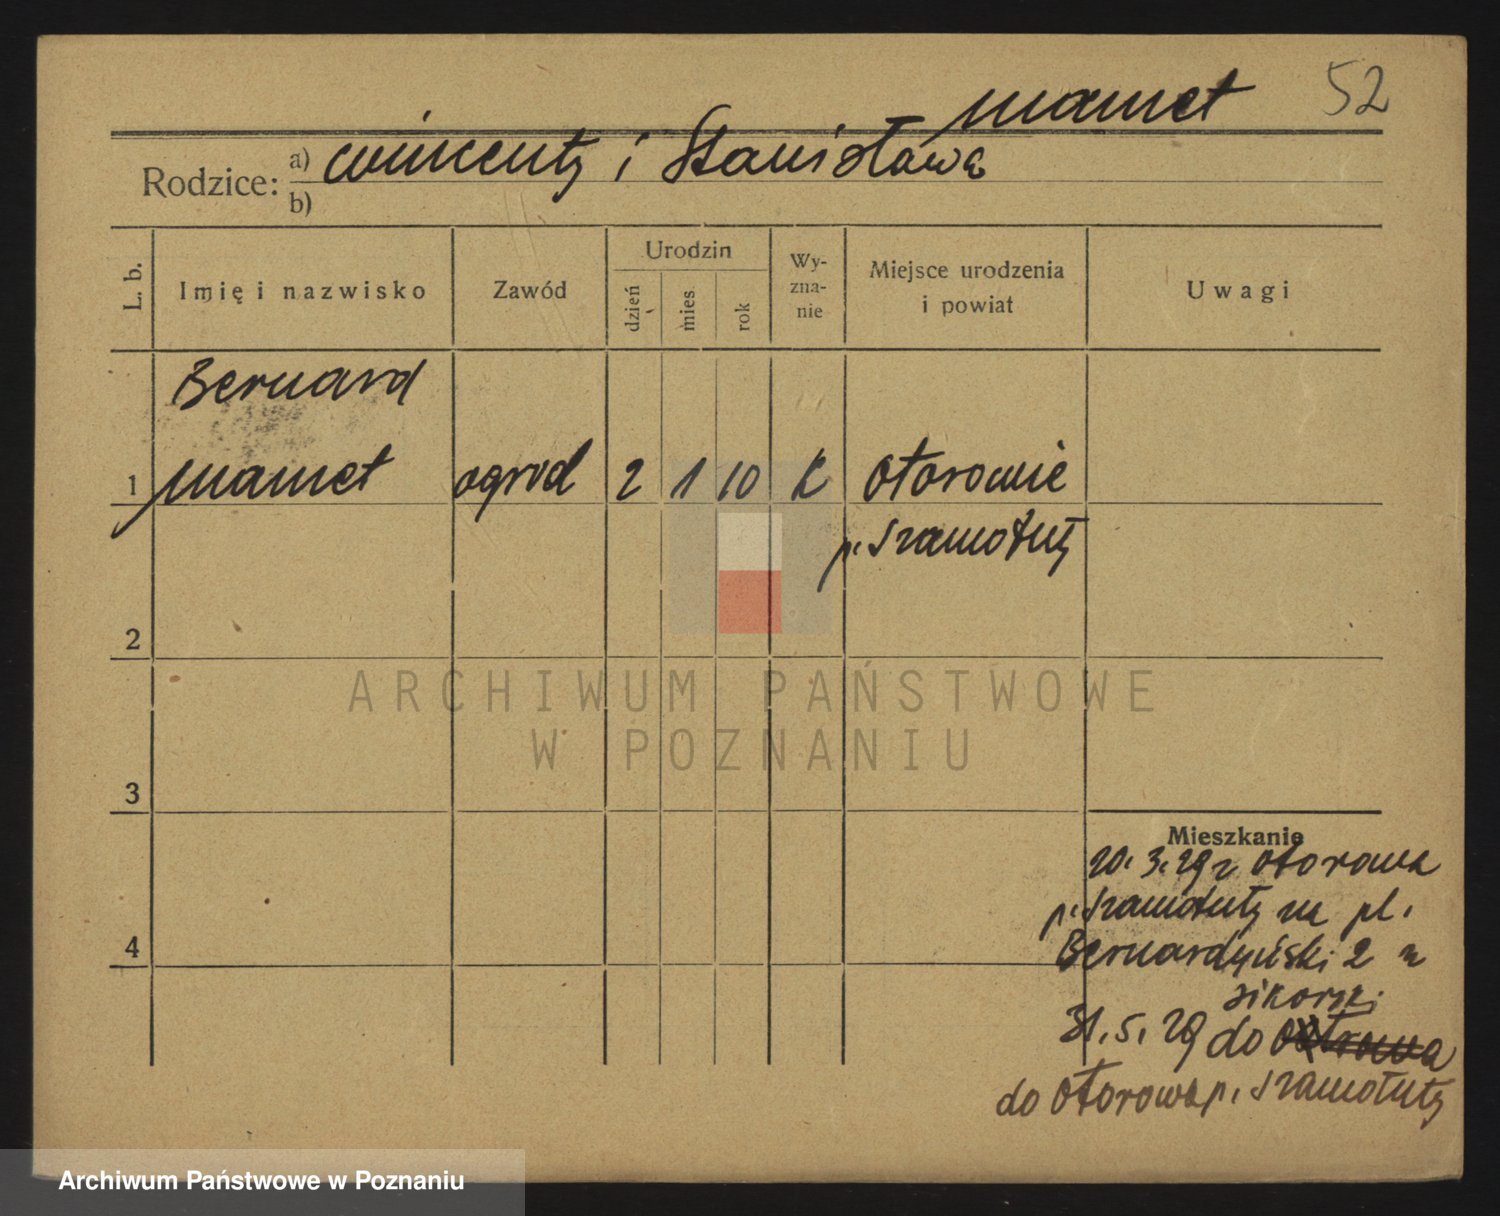 52
Mamet
Rodzice: a) Wincenty i Stanisława
b)
L. b.
Imię i nazwisko
Zawód
Urodzin
dzień
mies
rok
Wy-
zna-
nie
Miejsce urodzenia
i powiat
Uwagi
Bernard
1 Mamet ogrod 2 1 10 k Otorowie
p. Szamotuły
2
ARCHIWUM PAŃSTWOWE
W POZNANIU
3
Mieszkanie
20. 3. 29 z Otorowa
p. Szamotuły na pl.
4
Bernardyński 2 u
Sikorski
31. 5. 29 do
do Otorowa p. Szamotuły
Archiwum Państwowe w Poznaniu